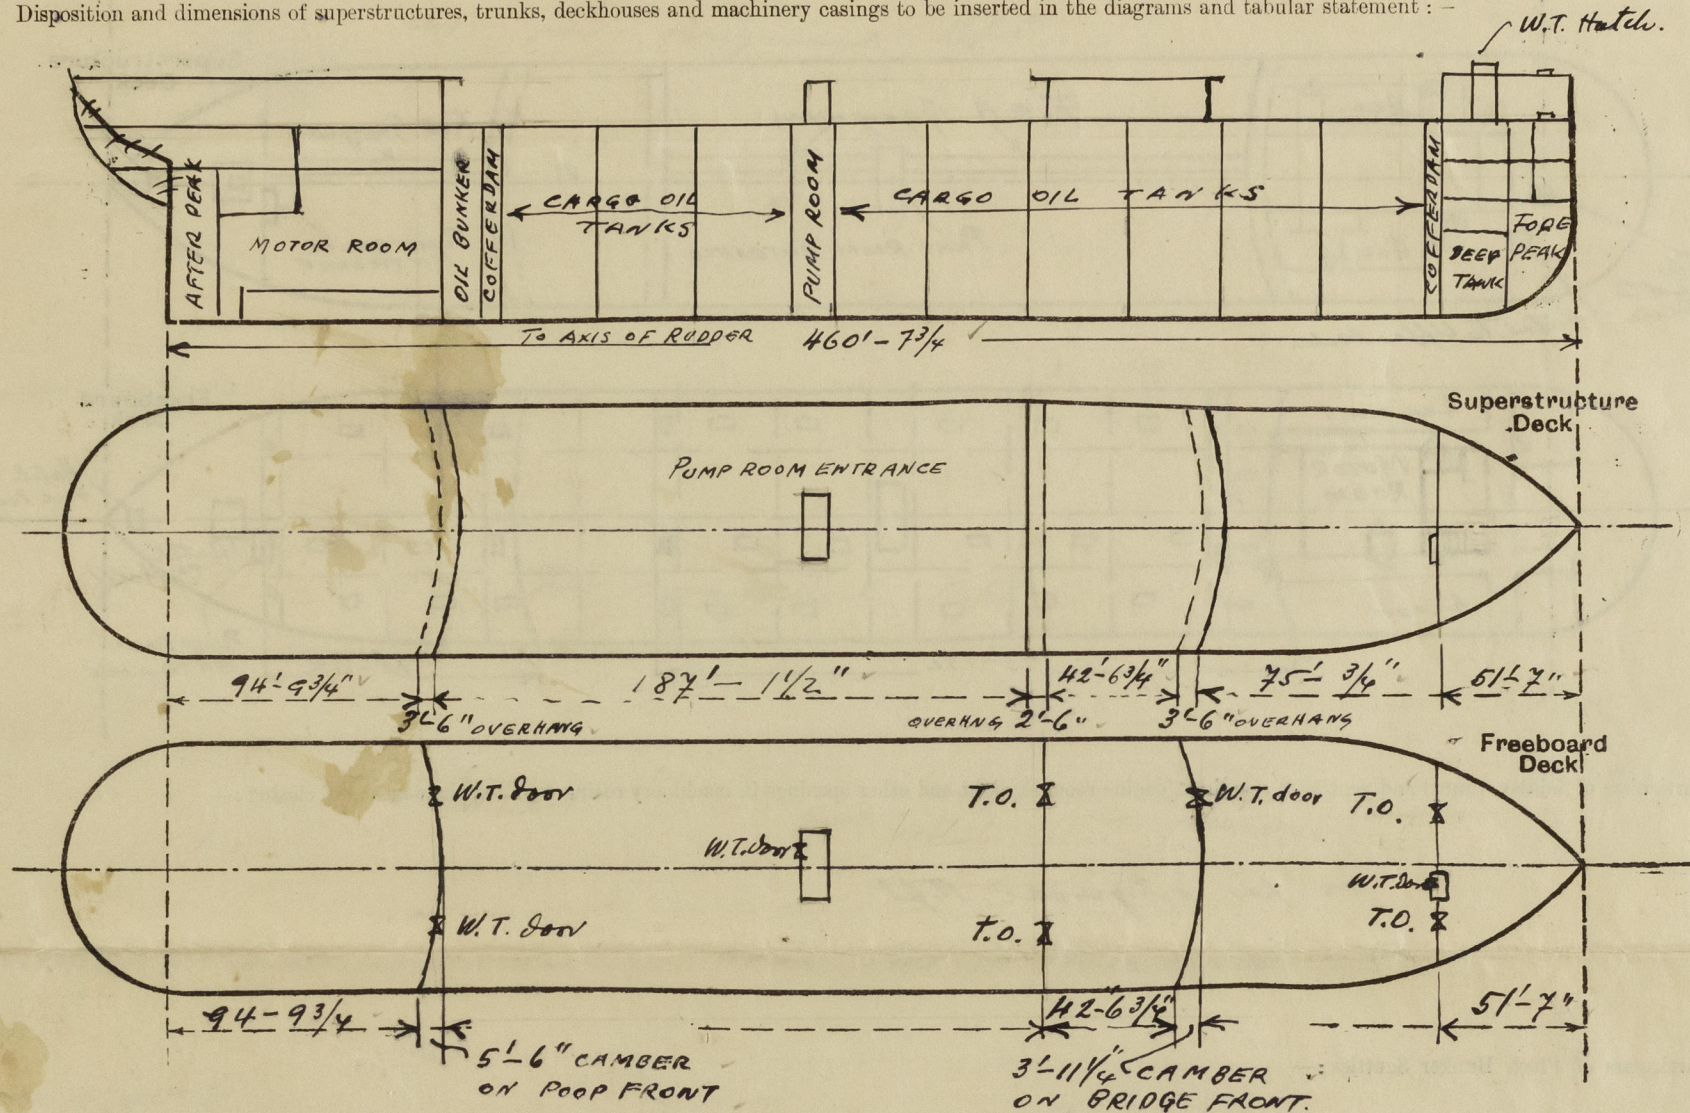 Disposition and dimensions of superstructures, trunks, deckhouses and machinery casings to be inserted in the diagrams and tabular statement : —
W.T. Hatch.
AFTER PEAK
MOTOR ROOM
OIL BUNKER
COFFERDAM
CARGO OIL
TANKS
PUMP ROOM
CARGO OIL TANKS
COFFERDAM
DEEP
TANK
FORE
PEAK
TO AXIS OF RUDDER 460'-7 3/4
Superstructure
Deck
PUMP ROOM ENTRANCE
94'-9 3/4" 187'-1 1/2" 42'-6 3/4" 75'- 3/4" 51'-7"
3'-6" OVERHANG OVERHNG 2'-6" 3'-6" OVERHANG
Freeboard
Deck
W.T. door T.O. W.T. door T.O.
W.T. door
W.T. Door
W.T. door T.O. T.O.
94-9 3/4 42-6 3/4" 51'-7"
5'-6" CAMBER
ON POOP FRONT
3'-11 1/4" CAMBER
ON BRIDGE FRONT.